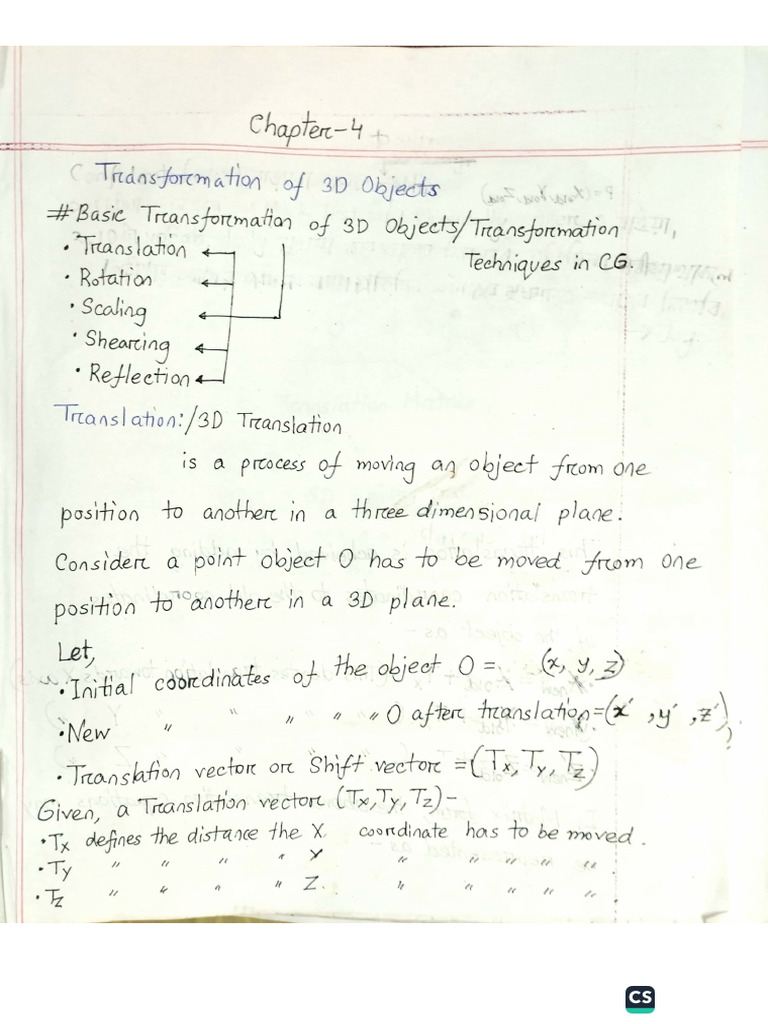 Chapter-4
Transformation of 3D Objects
# Basic Transformation of 3D Objects/Transformation
Techniques in CG.
• Translation
• Rotation
• Scaling
• Shearing
• Reflection
Translation:/3D Translation
is a process of moving an object from one
position to another in a three dimensional plane.
Consider a point object O has to be moved from one
position to another in a 3D plane.
Let,
• Initial coordinates of the object O = (x, y, z)
• New " " " " " O after translation = (x', y', z')
• Translation vector or Shift vector = (Tx, Ty, Tz)
Given, a Translation vector (Tx, Ty, Tz) -
• Tx defines the distance the X coordinate has to be moved.
• Ty " " " " Y " " " " " .
• Tz " " " " Z. " " " " " .
CS